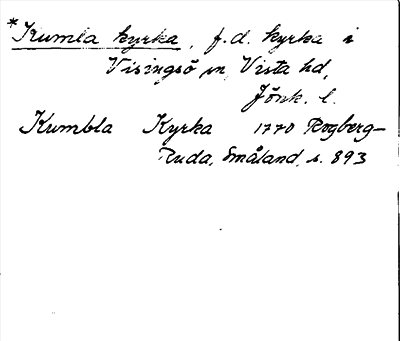 *Kumla kyrka, f.d. kyrka i
Visingsö sn, Vista hd,
Jönk. l.
Kumbla Kyrka 1770 Rogberg-
Ruda, Småland, s. 893